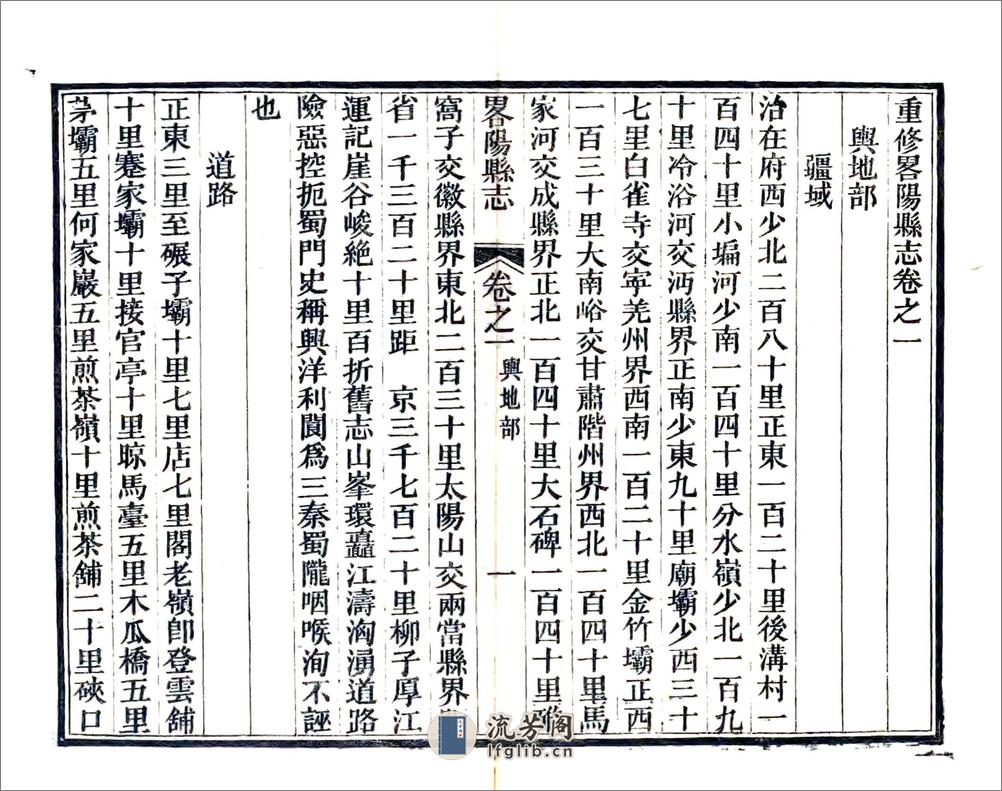 重修畧陽縣志卷之一
輿地部
疆域
治在府西少北二百八十里正東一百二十里後溝村一
百四十里小塥河少南一百四十里分水嶺少北一百九
十里冷浴河交沔縣界正南少東九十里廟壩少西三十
七里白雀寺交寧羌州界西南一百二十里金竹壩正西
一百三十里大南峪交甘肅階州界西北一百四十里馬
家河交成縣界正北一百四十里大石碑一百四十里
畧陽縣志
卷之一
輿地部
一
窩子交徽縣界東北二百三十里太陽山交兩當縣界
省一千三百二十里距 京三千七百二十里柳子厚江
運記崖谷峻絶十里百折舊志山峯環矗江濤洶湧道路
險惡控扼蜀門史稱興洋利閬爲三秦蜀隴咽喉洵不誣
也
道路
正東三里至碾子壩十里七里店七里閣老嶺卽登雲舖
十里蹇家壩十里接官亭十里晾馬臺五里木瓜橋五里
茅壩五里何家巖五里煎茶嶺十里煎茶舖二十里硤口
流芳阁
lfglib.cn